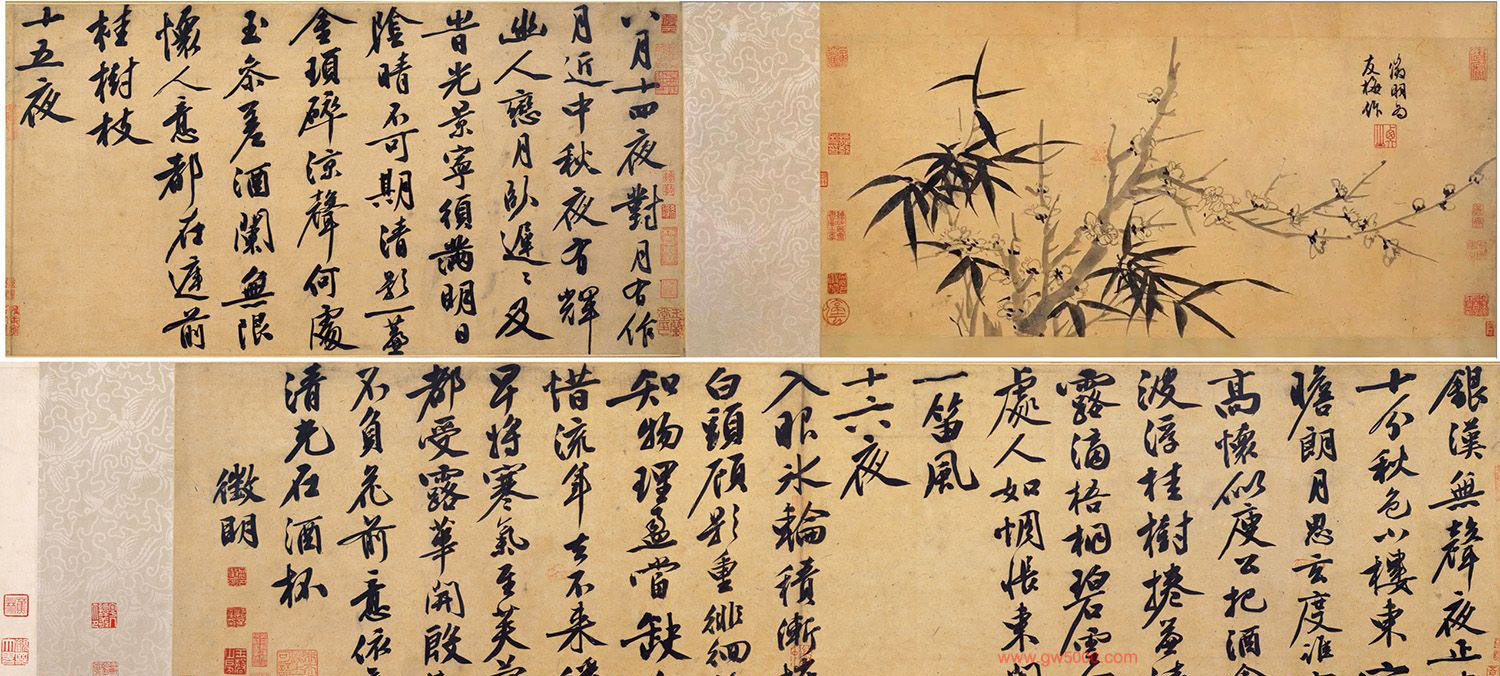 徵明為
友梅作
八月十四夜對月有作
月近中秋夜有輝
幽人戀月臥遲〻及
旹光景寧須滿明日
陰晴不可期清影一簾
金瑣碎涼聲何處
玉參差酒闌無限
懷人意都在庭前
桂樹枝
十五夜
銀漢無聲夜正
十分秋色小樓東
瞻朗月思玄度誰
高懷似庾公把酒
波浮桂樹捲簾清
露滴梧桐碧雲
處人如惆悵東闌
一笛風
十六夜
入眼冰輪積漸
白頭顧影重徘徊
知物理盈當缺
惜流年去不來
早將寒氣至芙
都受露華開殷
不負花前意依
清光在酒杯
徵明